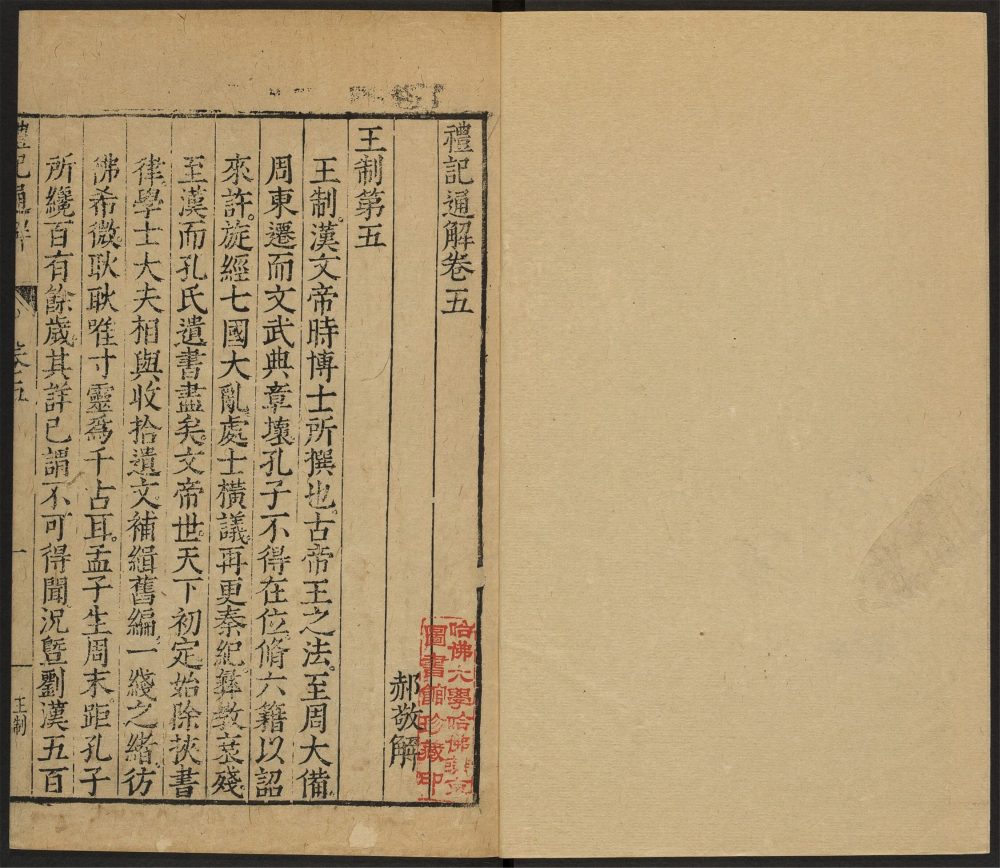 禮記通解卷五
郝敬解
王制第五
王制。漢文帝時博士所撰也。古帝王之法。至周大備。
周東遷而文武典章壞。孔子不得在位。脩六籍以詔
來許。旋經七國大亂。處士橫議。再更秦紀。彝敎衰殘。
至漢而孔氏遺書盡矣。文帝世。天下初定。始除挾書
律。學士大夫相與收拾遺文。補緝舊編。一綫之緒。彷
彿希微。耿耿唯寸靈爲千占耳。孟子生周末。距孔子
所纔百有餘歲。其詳已謂不可得聞。況曁劉漢五百
禮記通解
卷五
王制
一
哈佛大學哈佛
圖書館珍藏印